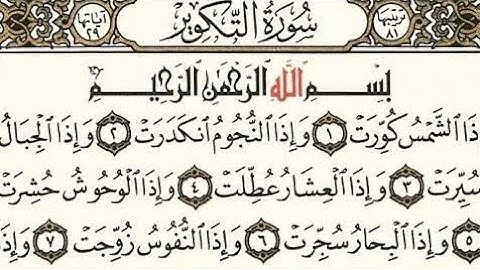 ترتيبها ٨١ سُورَةُ التَّكْوِيرِ آياتها ٢٩
بِسْمِ اللَّهِ الرَّحْمَٰنِ الرَّحِيمِ
ذَا الشَّمْسُ كُوِّرَتْ ١ وَإِذَا النُّجُومُ انكَدَرَتْ ٢ وَإِذَا الْجِبَالُ
سُيِّرَتْ ٣ وَإِذَا الْعِشَارُ عُطِّلَتْ ٤ وَإِذَا الْوُحُوشُ حُشِرَتْ
٥ وَإِذَا الْبِحَارُ سُجِّرَتْ ٦ وَإِذَا النُّفُوسُ زُوِّجَتْ ٧ وَإِذَا